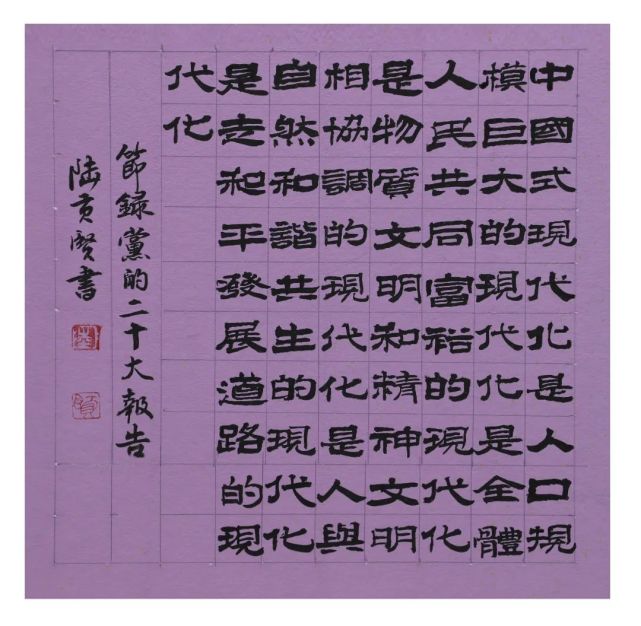 中國式現代化是人口規
模巨大的現代化是全體
人民共同富裕的現代化
是物質文明和精神文明
相協調的現代化是人與
自然和諧共生的現代化
是走和平發展道路的現
代化
節録黨的二十大報告
陆貢賢書